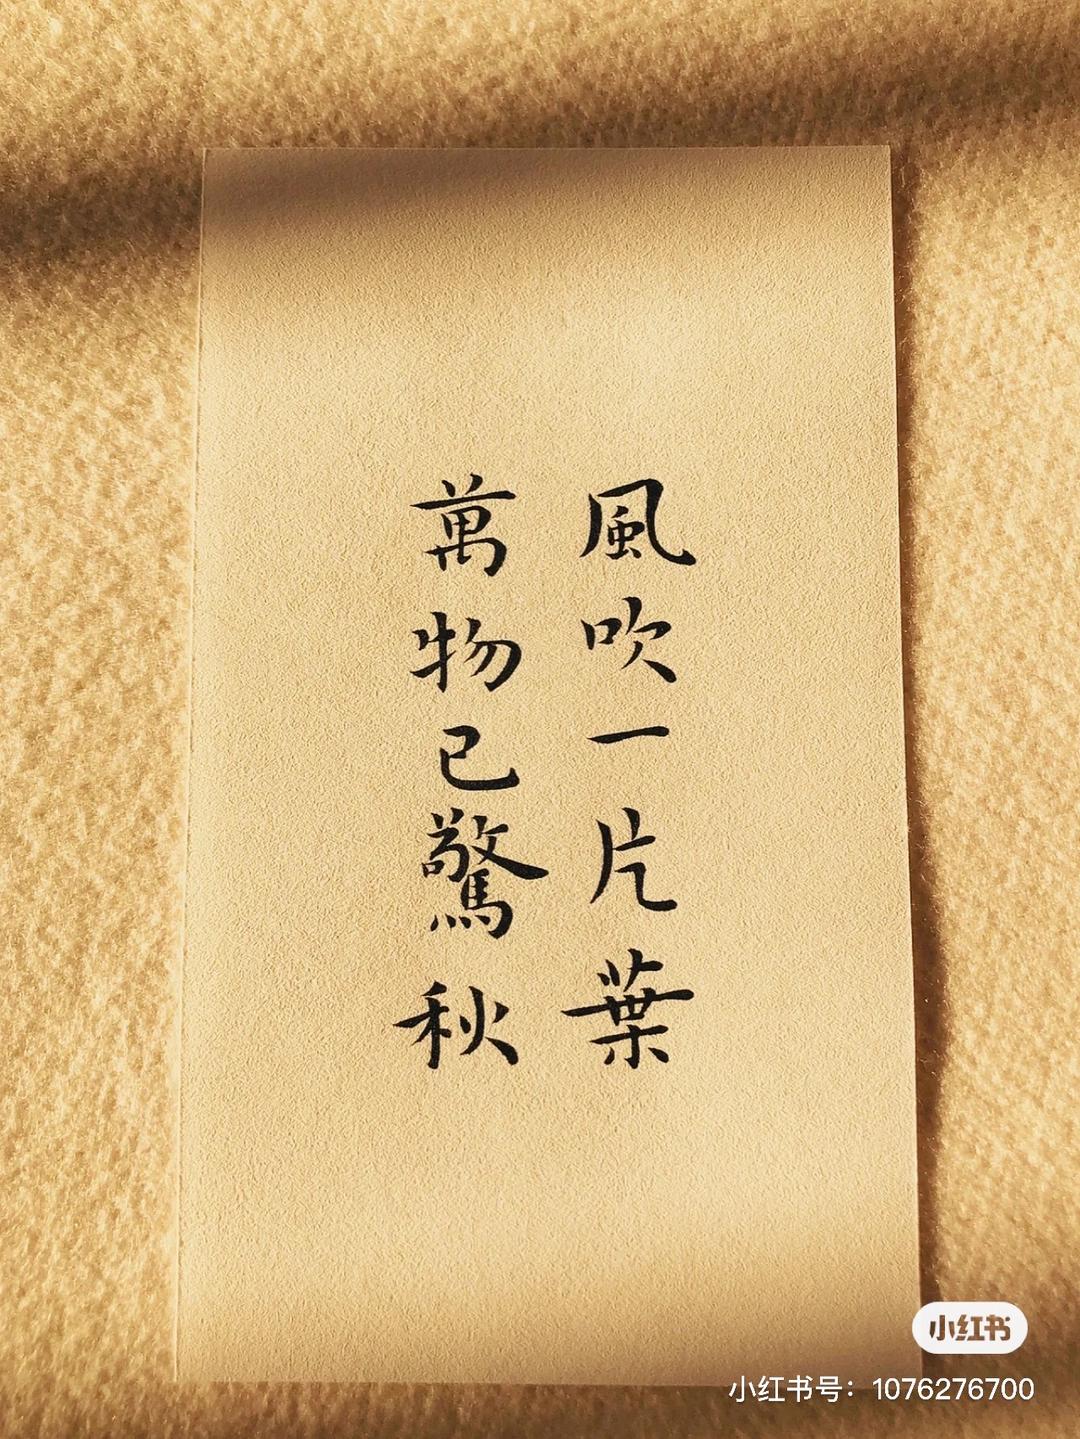 風吹一片葉
萬物已驚秋
小红书
小红书号：1076276700